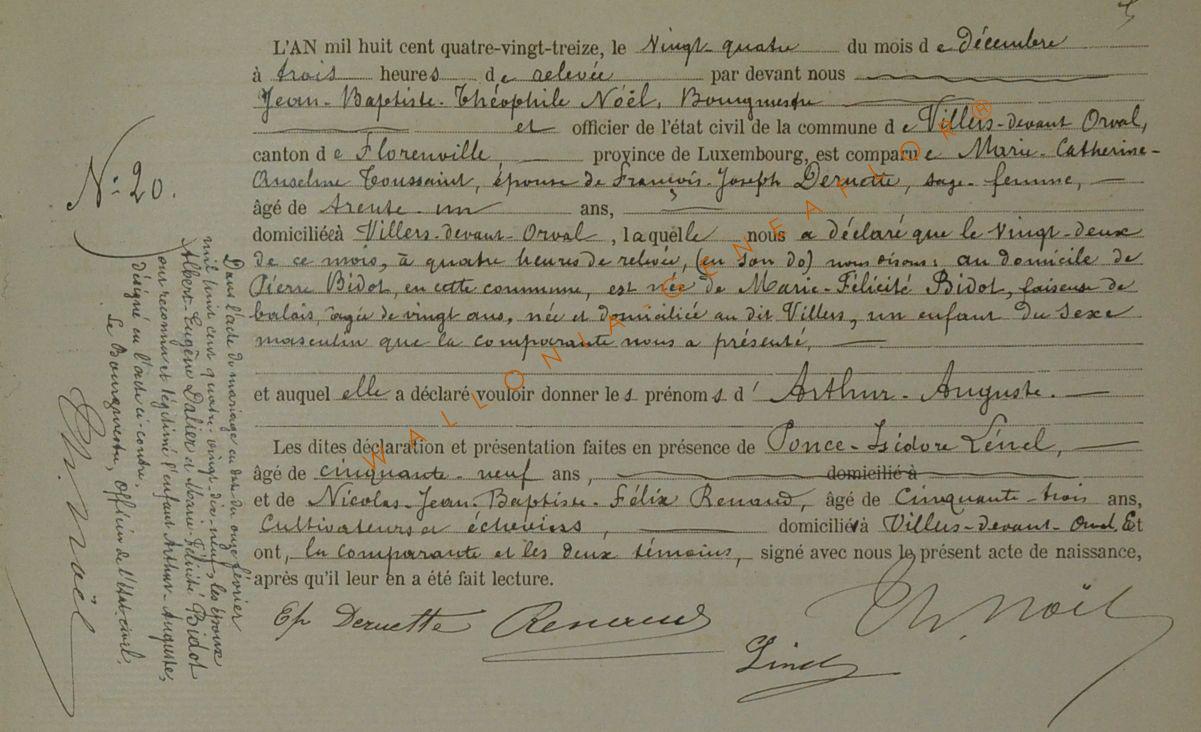 L'AN mil huit cent quatre-vingt-treize, le Vingt-quatre du mois de décembre
à trois heures de relevée par devant nous
Jean-Baptiste-Théophile Noël, Bourgmestre
et officier de l'état civil de la commune de Villers-devant Orval,
canton de Florenville, province de Luxembourg, est comparue Marie-Catherine-
Anseline Toussaint, épouse de François-Joseph Deruette, sage-femme,
âgé de trente-un ans,
domiciliée à Villers-devant-Orval, laquelle nous a déclaré que le vingt-deux
de ce mois, à quatre heures de relevée, (en son do) nous disons: au domicile de
Pierre Bidot, en cette commune, est née de Marie-Félicité Bidot, faiseuse de
balais, âgée de vingt ans, née et domiciliée au dit Villers, un enfant du sexe
masculin que la comparante nous a présenté,
et auquel elle a déclaré vouloir donner les prénoms d'Arthur-Auguste.
Les dites déclaration et présentation faites en présence de Ponce-Isidore Linel,
âgé de cinquante-neuf ans, domicilié à
et de Nicolas-Jean-Baptiste-Félix Renaud, âgé de cinquante-trois ans,
Cultivateurs et échevins, domiciliés à Villers-devant-Orval. Et
ont, la comparante et les deux témoins, signé avec nous le présent acte de naissance,
après qu'il leur en a été fait lecture.
Ep Deruette Renaud Th. Noël
Linel
N° 20.
Dans l'acte de mariage en date du onze février
mil huit cent quatre-vingt-dix-neuf, les époux
Albert-Eugène Dalier et Marie-Félicité Bidot
ont reconnu et légitimé l'enfant Arthur-Auguste,
désigné en l'acte ci-contre.
Le Bourgmestre, Officier de l'Etat-civil.
Th. Noël
WALLONIA GENEAFLOR®